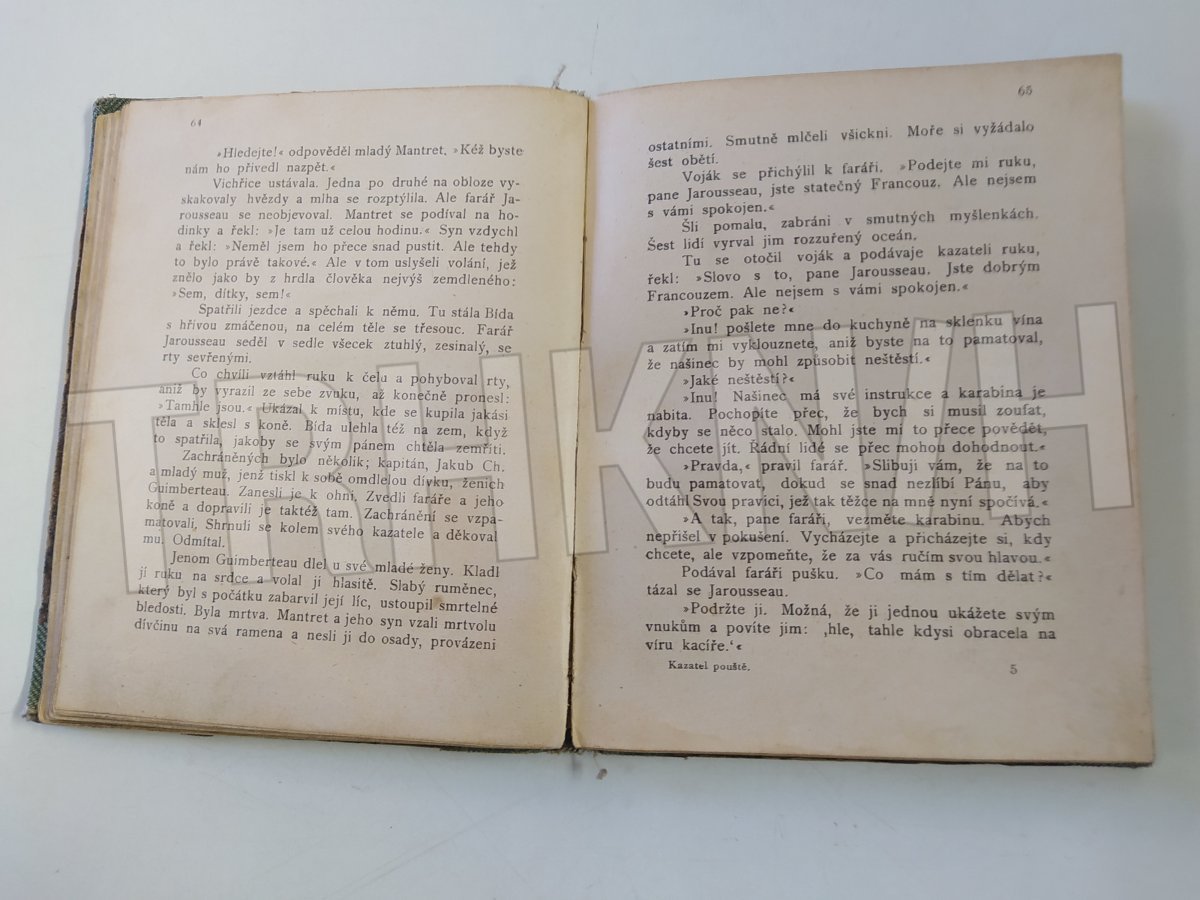 64
»Hledejte!« odpověděl mladý Mantret. »Kéž byste
nám ho přivedl nazpět.«
Vichřice ustávala. Jedna po druhé na obloze vy-
skakovaly hvězdy a mlha se rozptýlila. Ale farář Ja-
rousseau se neobjevoval. Mantret se podíval na ho-
dinky a řekl: »Je tam už celou hodinu.« Syn vzdychl
a řekl: »Neměl jsem ho přece snad pustit. Ale tehdy
to bylo právě takové.« Ale v tom uslyšeli volání, jež
znělo jako by z hrdla člověka nejvýš zemdleného:
»Sem, dítky, sem!«
Spatřili jezdce a spěchali k němu. Tu stála Bída
s hřívou zmáčenou, na celém těle se třesouc. Farář
Jarousseau seděl v sedle všecek ztuhlý, zesinalý, se
rty sevřenými.
Co chvíli vztáhl ruku k čelu a pohyboval rty,
aniž by vyrazil ze sebe zvuku, až konečně pronesl:
»Tamhle jsou.« Ukázal k místu, kde se kupila jakási
těla a sklesl s koně. Bída ulehla též na zem, když
to spatřila, jakoby se svým pánem chtěla zemříti.
Zachráněných bylo několik; kapitán, Jakub Ch.
a mladý muž, jenž tiskl k sobě omdlelou dívku, ženich
Guimberteau. Zanesli je k ohni. Zvedli faráře a jeho
koně a dopravili je taktéž tam. Zachránění se vzpa-
matovali. Shrnuli se kolem svého kazatele a děkoval
mu. Odmítal.
Jenom Guimberteau dlel u své mladé ženy. Kladl
jí ruku na srdce a volal ji hlasitě. Slabý ruměnec,
který byl s počátku zabarvil její líc, ustoupil smrtelné
bledosti. Byla mrtva. Mantret a jeho syn vzali mrtvolu
dívčinu na svá ramena a nesli ji do osady, provázeni
65
ostatními. Smutně mlčeli všickni. Moře si vyžádalo
šest obětí.
Voják se přichýlil k faráři. »Podejte mi ruku,
pane Jarousseau, jste statečný Francouz. Ale nejsem
s vámi spokojen.«
Šli pomalu, zabráni v smutných myšlenkách.
Šest lidí vyrval jim rozzuřený oceán.
Tu se otočil voják a podávaje kazateli ruku,
řekl: »Slovo s to, pane Jarousseau. Jste dobrým
Francouzem. Ale nejsem s vámi spokojen.«
»Proč pak ne?«
»Inu! pošlete mne do kuchyně na sklenku vína
a zatím mi vyklouznete, aniž byste na to pamatoval,
že našinec by mohl způsobit neštěstí.«
»Jaké neštěstí?«
»Inu! Našinec má své instrukce a karabina je
nabita. Pochopíte přec, že bych si musil zoufat,
kdyby se něco stalo. Mohl jste mi to přece povědět,
že chcete jít. Řádní lidé se přec mohou dohodnout.«
»Pravda,« pravil farář. »Slibuji vám, že na to
budu pamatovat, dokud se snad nezlíbí Pánu, aby
odtáhl Svou pravici, jež tak těžce na mně nyní spočívá.«
»A tak, pane faráři, vezměte karabinu. Abych
nepřišel v pokušení. Vycházejte a přicházejte si, kdy
chcete, ale vzpomeňte, že za vás ručím svou hlavou.«
Podával faráři pušku. »Co mám s tím dělat?«
tázal se Jarousseau.
»Podržte ji. Možná, že ji jednou ukážete svým
vnukům a povíte jim: ‚hle, tahle kdysi obracela na
víru kacíře.‘«
Kazatel pouště. 5
TRHKNIH